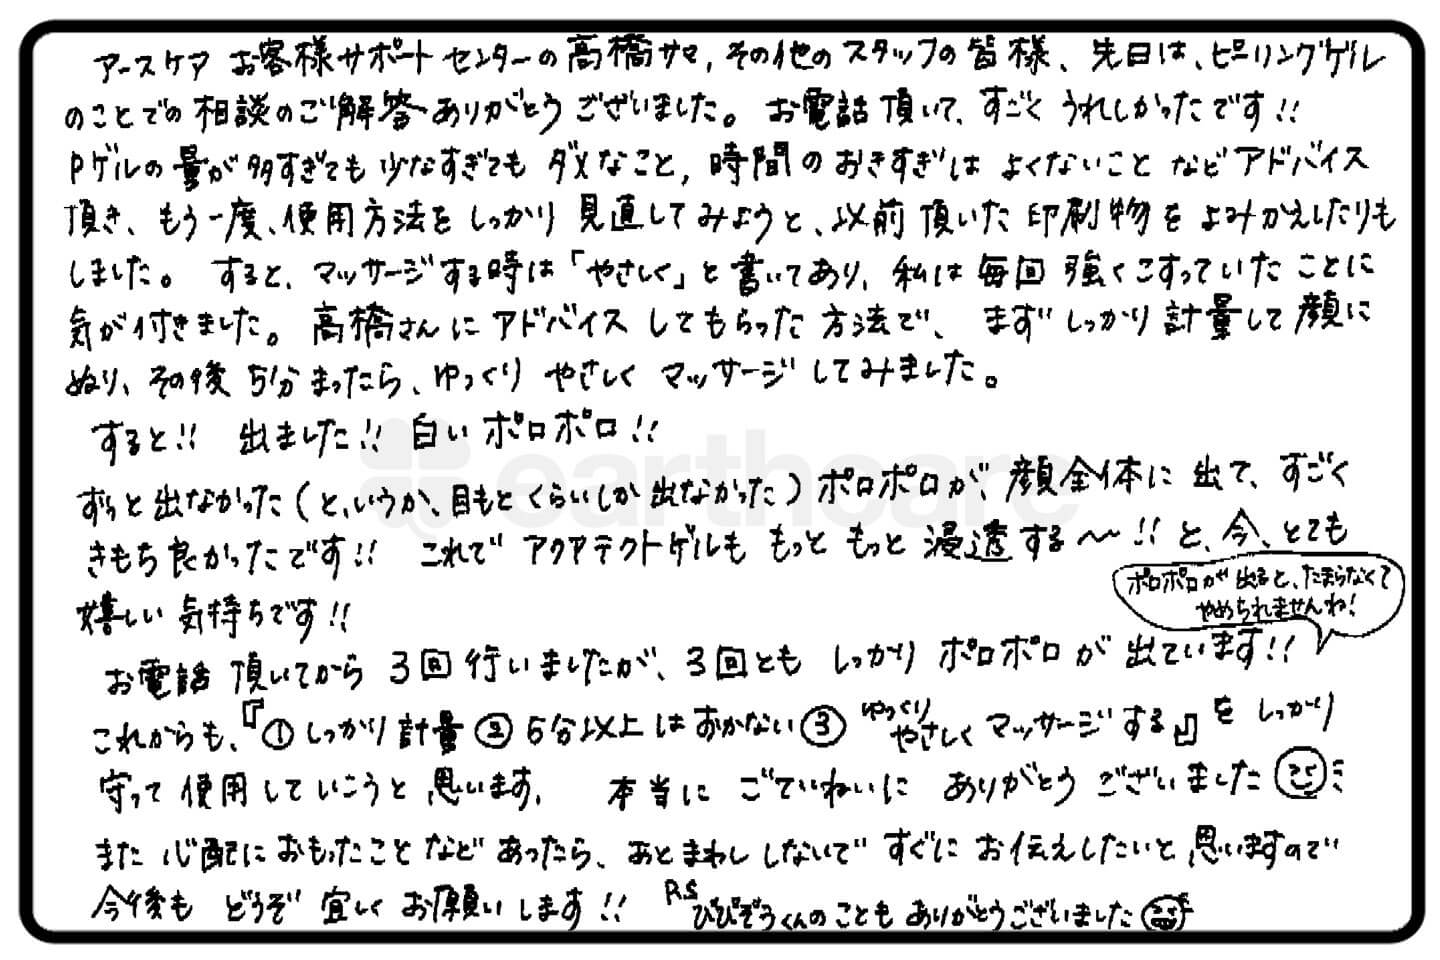 アースケア お客様サポートセンターの高橋サマ, その他のスタッフの皆様、先日は、ピーリングゲル
のことでの相談のご解答ありがとうございました。 お電話頂いて、すごくうれしかったです!!
Pゲルの量が多すぎても少なすぎてもダメなこと, 時間のおきすぎはよくないことなどアドバイス
頂き、もう一度、使用方法をしっかり見直してみようと、以前頂いた印刷物をよみかえしたりも
しました。 すると、マッサージする時は「やさしく」と書いてあり、私は毎回強くこすっていたことに
気が付きました。高橋さんにアドバイスしてもらった方法で、まずしっかり計量して顔に
ぬり、その後5分まったら、ゆっくりやさしくマッサージしてみました。
すると!! 出ました!! 白いポロポロ!!
earthcare
ずっと出なかった(と、いうか、目もとくらいしか出なかった)ポロポロが、顔全体に出て、すごく
きもち良かったです!! これでアクアテクトゲルももっともっと浸透する〜!!と、今、とても
嬉しい気持ちです!!
ポロポロが出ると、たまらなくて
やめられませんね!
お電話頂いてから3回行いましたが、3回ともしっかりポロポロが出ています!!
これからも、『①しっかり計量②5分以上はおかない③ゆっくりやさしくマッサージする』をしっかり
守って使用していこうと思います. 本当にごていねいにありがとうございました
また心配におもったことなどあったら、あとまわししないですぐにお伝えしたいと思いますので
今後もどうぞ宜しくお願いします!! P.S びびぞうくんのこともありがとうございました